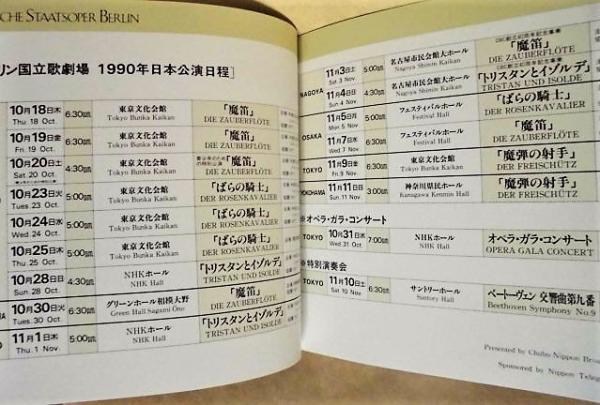 CHE STAATSOPER BERLIN
リン国立歌劇場 1990年日本公演日程]
10月18日木 6:30 東京文化会館 「魔笛」
Thu 18 Oct. Tokyo Bunka Kaikan DIE ZAUBERFLÖTE
10月19日金 6:30 東京文化会館 「魔笛」
Fri. 19 Oct. Tokyo Bunka Kaikan DIE ZAUBERFLÖTE
10月20日土 東京文化会館 「魔笛」
Sat 20 Oct. Tokyo Bunka Kaikan DIE ZAUBERFLÖTE
10月23日火 5:00 東京文化会館 「ばらの騎士」
Tues 23 Oct. Tokyo Bunka Kaikan DER ROSENKAVALIER
10月24日水 5:00 東京文化会館 「ばらの騎士」
Wed 24 Oct. Tokyo Bunka Kaikan DER ROSENKAVALIER
10月25日木 5:00 東京文化会館 「ばらの騎士」
Thu 25 Oct. Tokyo Bunka Kaikan DER ROSENKAVALIER
10月28日日 4:30 NHKホール 「トリスタンとイゾルデ」
Sun 28 Oct. NHK Hall TRISTAN UND ISOLDE
10月30日火 6:30 グリーンホール相模大野 「魔笛」
Tues 30 Oct. Green Hall Sagami Ono DIE ZAUBERFLÖTE
11月1日木 5:00 NHKホール 「トリスタンとイゾルデ」
Thu. 1 Nov. NHK Hall TRISTAN UND ISOLDE
NAGOYA 11月3日土 5:00 名古屋市民会館大ホール 「魔笛」
Sat 3 Nov. Nagoya Shimin Kaikan DIE ZAUBERFLÖTE
11月4日日 4:30 名古屋市民会館大ホール 「トリスタンとイゾルデ」
Sun 4 Nov. Nagoya Shimin Kaikan TRISTAN UND ISOLDE
OSAKA 11月5日月 5:00 フェスティバルホール 「ばらの騎士」
Mon 5 Nov. Festival Hall DER ROSENKAVALIER
11月7日水 6:30 フェスティバルホール 「魔笛」
Wed 7 Nov. Festival Hall DIE ZAUBERFLÖTE
TOKYO 11月9日金 6:30 東京文化会館 「魔弾の射手」
Fri 9 Nov. Tokyo Bunka Kaikan DER FREISCHÜTZ
YOKOHAMA 11月11日日 3:00 神奈川県民ホール 「魔弾の射手」
Sun 11 Nov. Kanagawa Kenmin Hall DER FREISCHÜTZ
※オペラ・ガラ・コンサート
TOKYO 10月31日水 7:00 NHKホール オペラ・ガラ・コンサート
Wed 31 Oct. NHK Hall OPERA GALA CONCERT
※特別演奏会
TOKYO 11月10日土 6:30 サントリーホール ベートーヴェン 交響曲第九番
Sat 10 Nov. Suntory Hall Beethoven Symphony No.9
Presented by Chubu Nippon Broa
Sponsored by Nippon Teleg